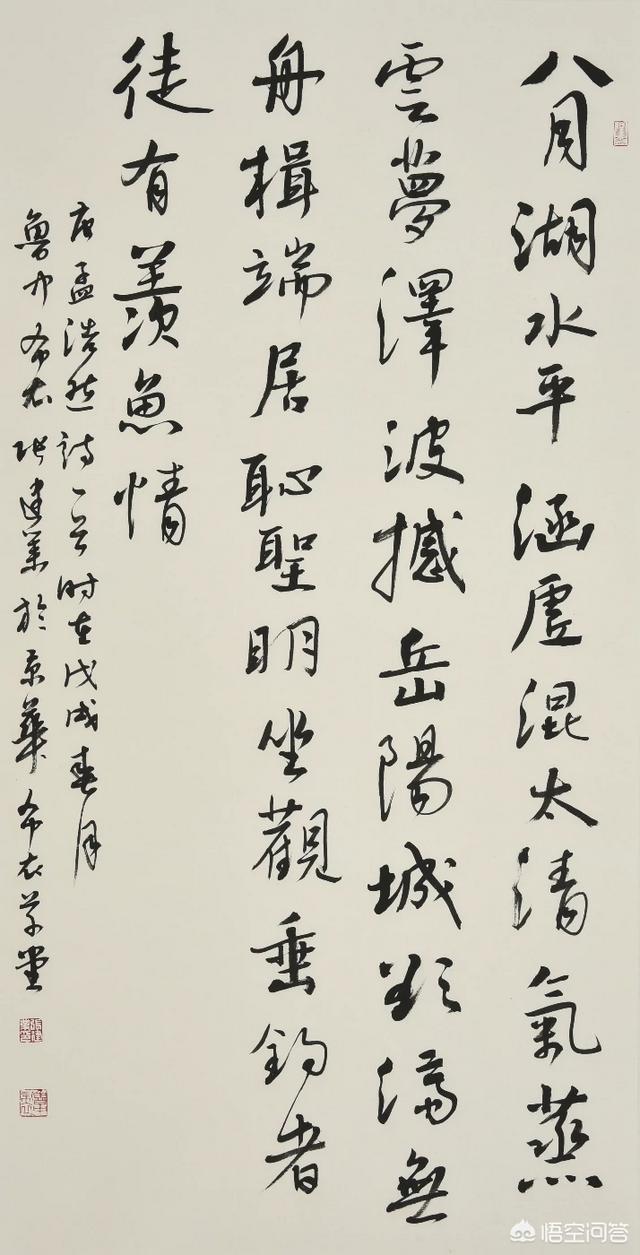 八月湖水平涵虛混太清氣蒸
雲夢澤波撼岳陽城欲濟無
舟楫端居恥聖明坐觀垂釣者
徒有羨魚情
唐孟浩然詩一首时在戊戌春月
魯中布衣张建業於京華布衣草堂
悟空问答